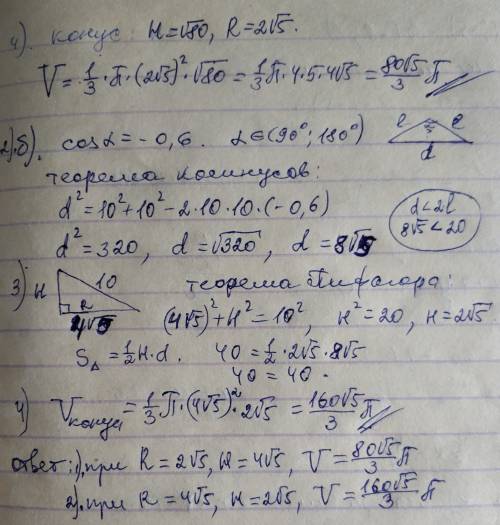 4). конус: H=√80, R=2√5.
V=1/3·π·(2√5)²·√80=1/3π·4·5·4√5=80√5/3 π
2) б). cosα=-0,6. α∈(90°;180°)
l l
d
теорема косинусов:
d²=10²+10²-2·10·10·(-0,6)
d<2l
8√5<20
d²=320, d=√320, d=8√5
3) H 10 теорема Пифагора:
R
4√5 (4√5)²+H²=10², H²=20, H=2√5
S△=1/2H·d. 40=1/2·2√5·8√5
40=40.
4) Vконуса=1/3π·(4√5)²·2√5=160√5/3 π
ответ: 1). при R=2√5, H=4√5, V=80√5/3 π
2). при R=4√5, H=2√5, V=160√5/3 π